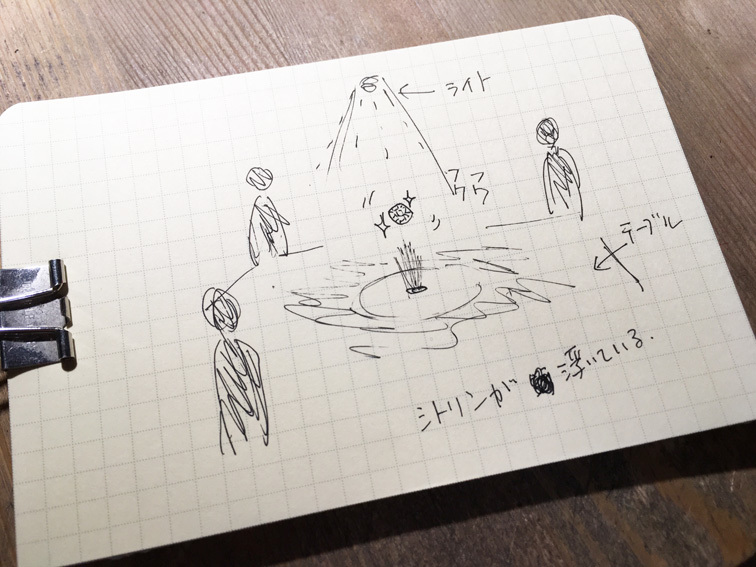 ライト
ワワ
ワワ
テーブル
シトリンが浮いている.